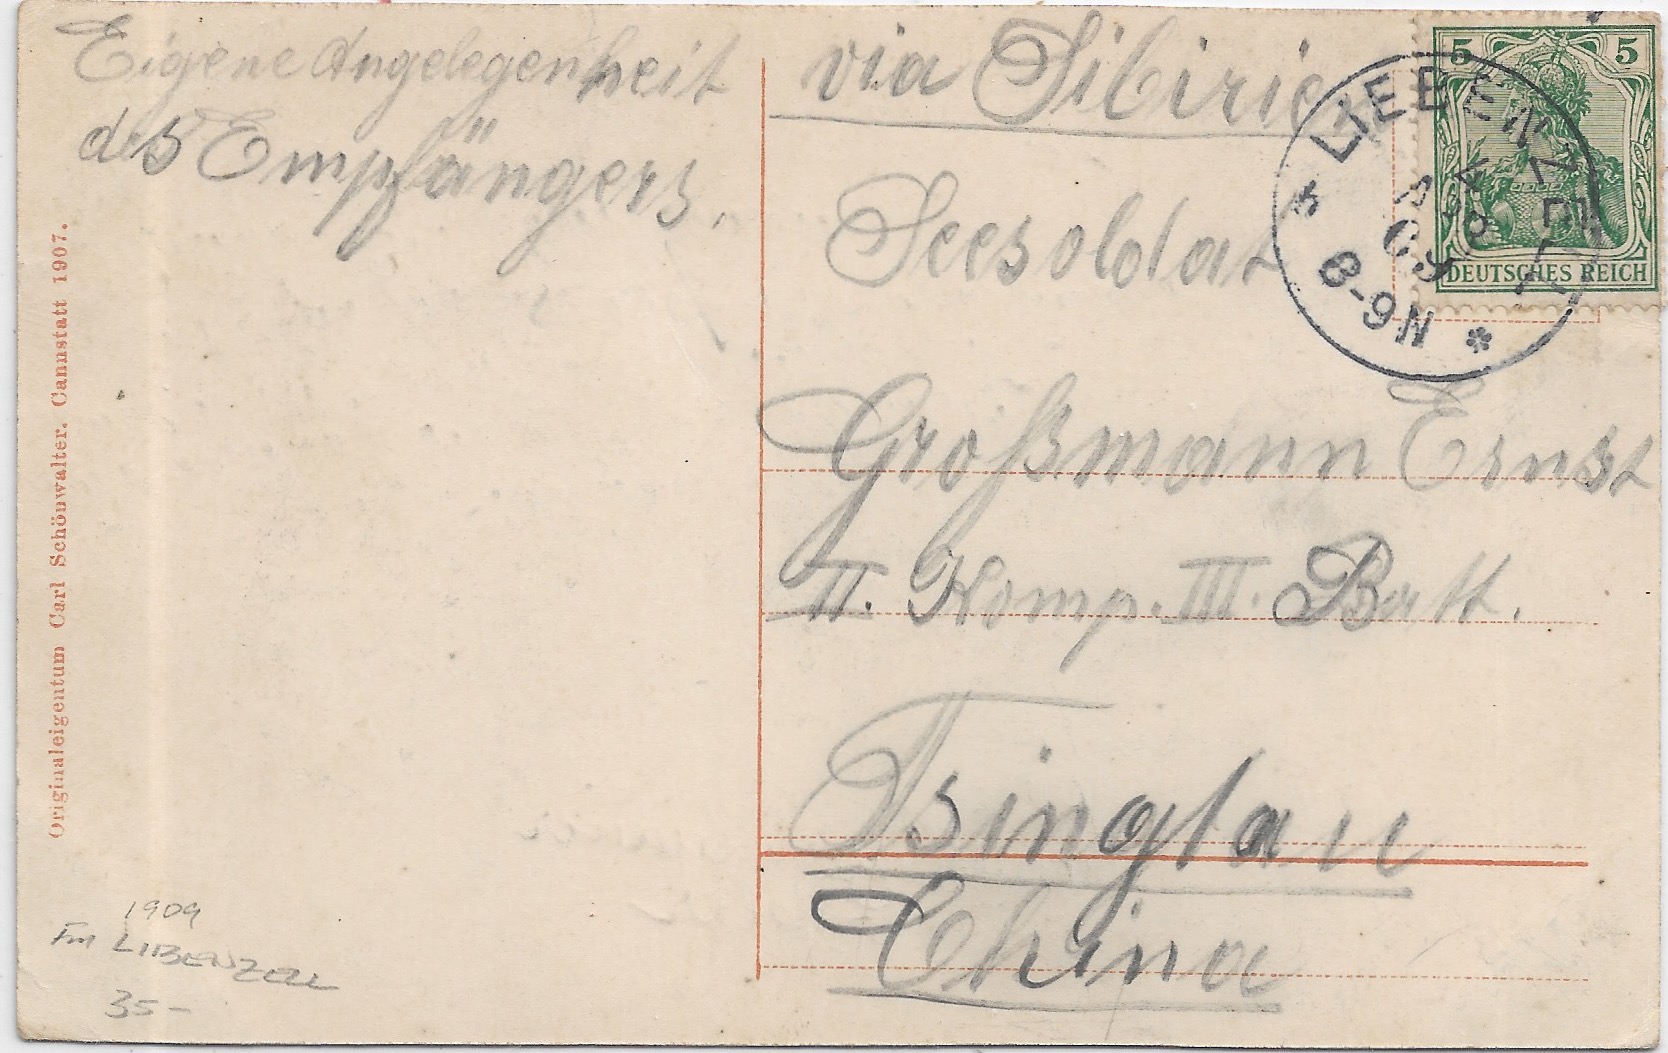 Eigene Angelegenheit
des Empfängers.
via Sibirie
5 5
DEUTSCHES REICH
LIEBENZELL
4
APR
09
8-9N
Seesoldat
Großmann Ernst
II. Komp. III. Batt.
Tsingtau
China
Originaleigentum Carl Schönwalter. Cannstatt 1907.
1909
Fm LIBENZELL
35-